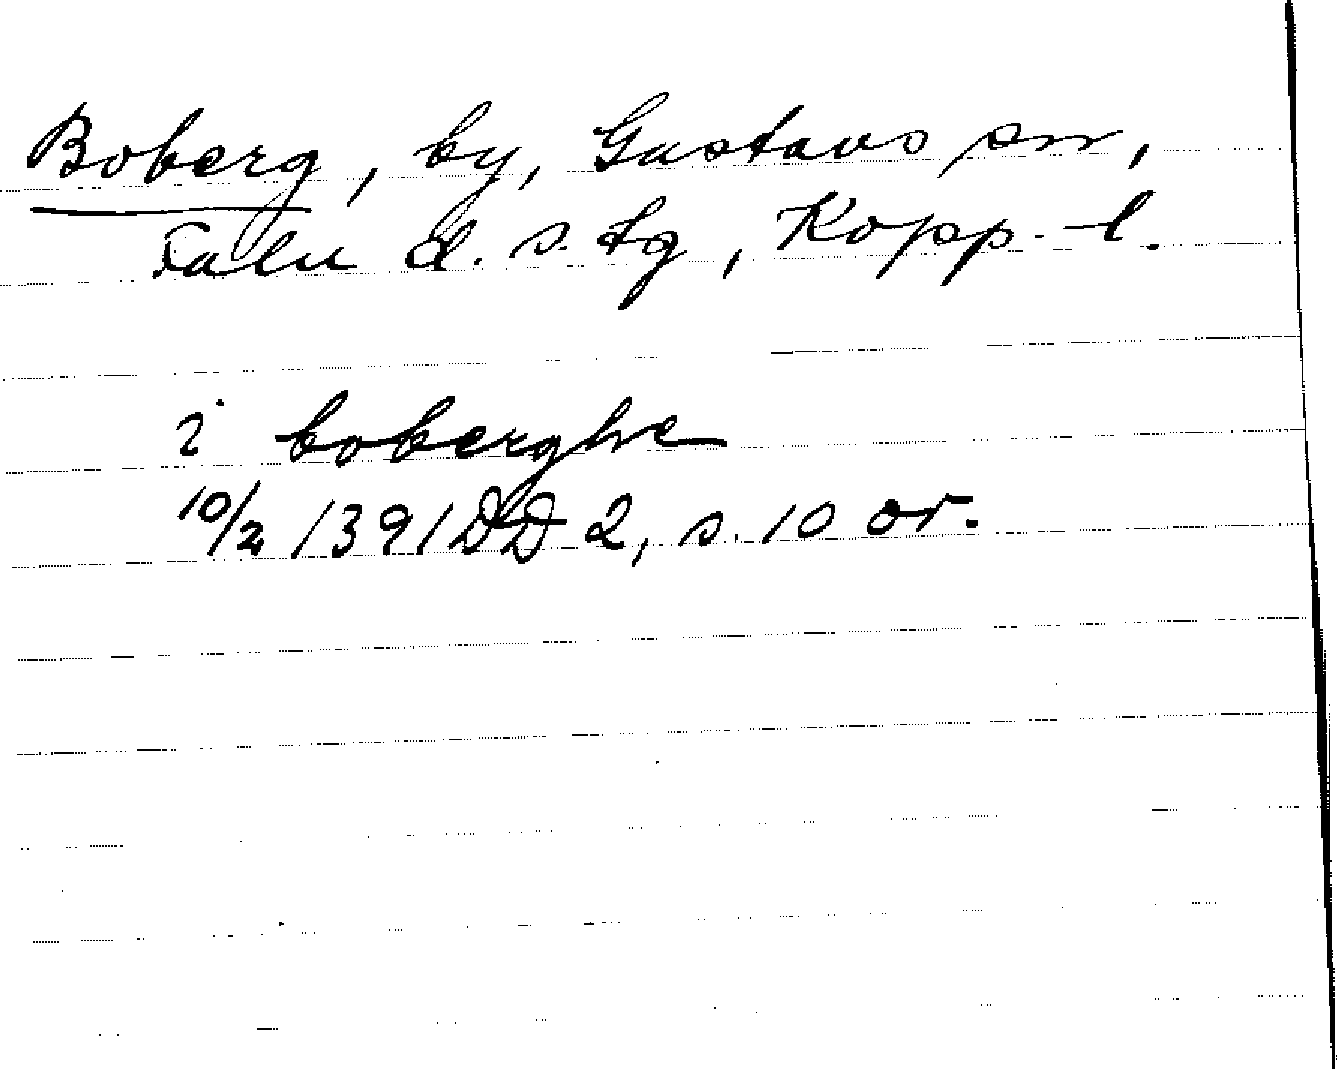 Boberg, by, Gustavs sn,
Falu d. s. tg, Kopp. l.
i boberghe
10/2 1391 DD 2, s. 10 or.